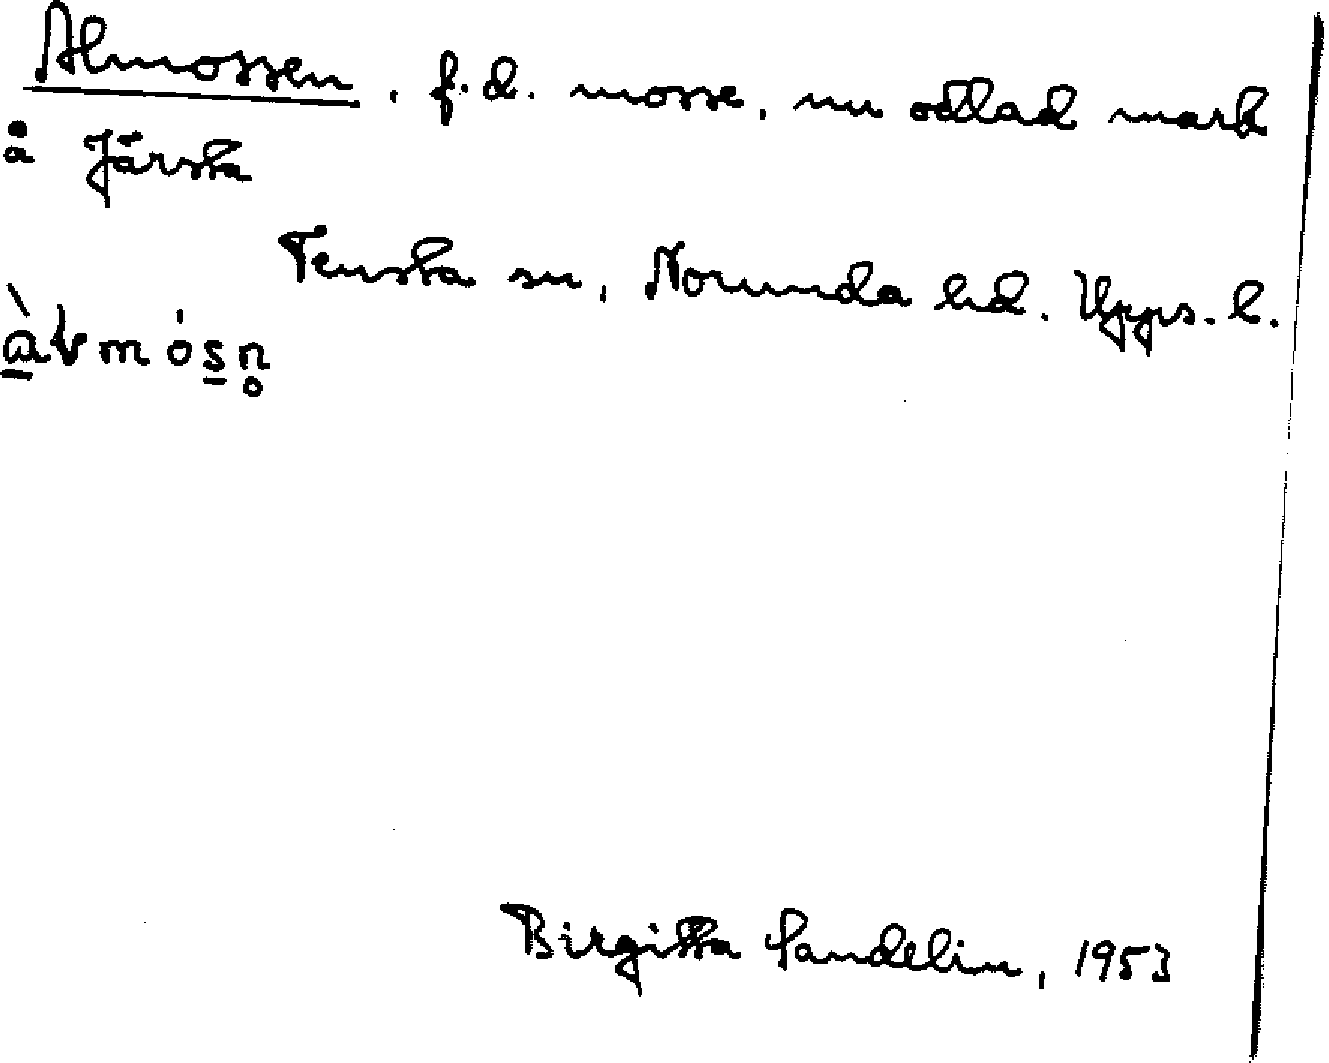 Almossen, f.d. mosse, nu odlad mark
å Järsta
Tensta sn, Norunda hd. Upps. l.
Birgitta Sandelin, 1953